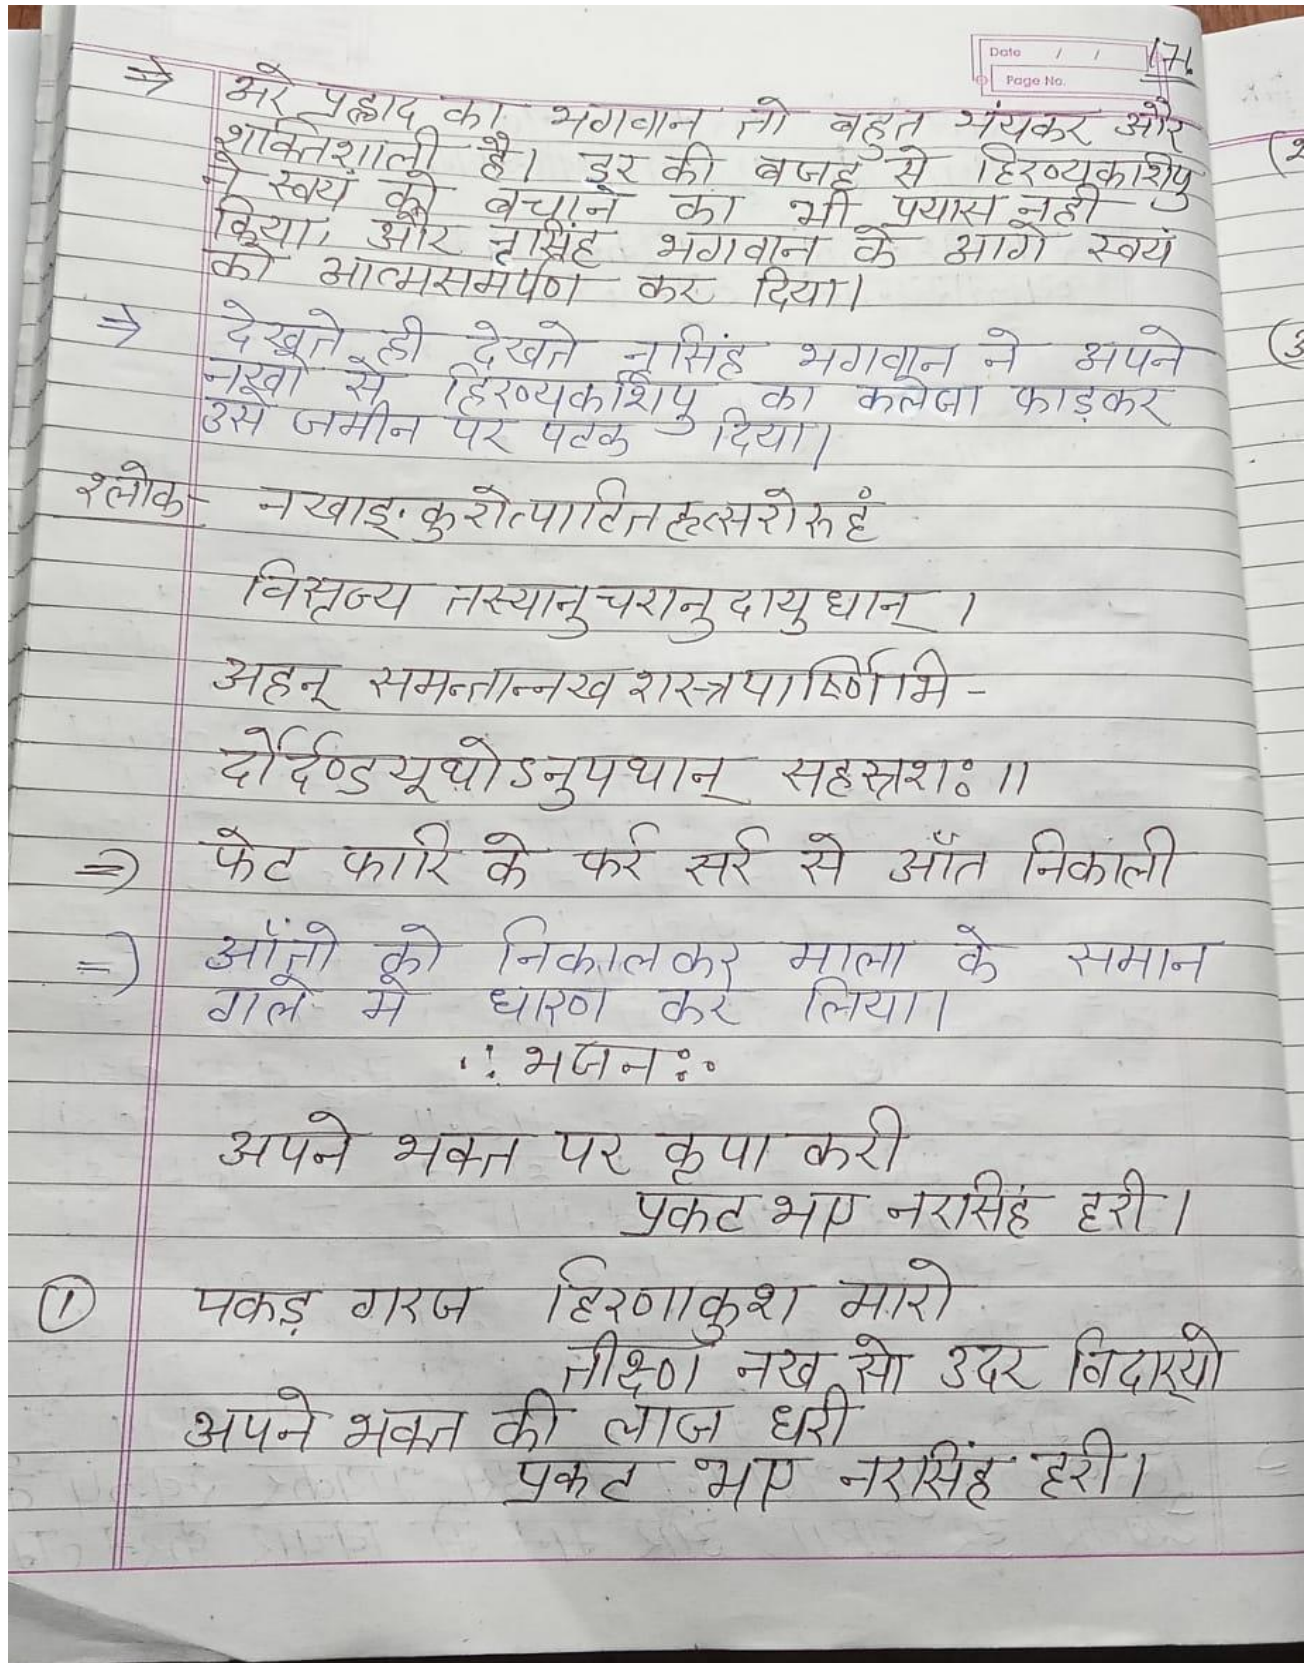 Date / /
171.
Page No.
⇒ अरे प्रह्लाद का भगवान तो बहुत भंयकर और
शक्तिशाली है। डर की वजह से हिरण्यकशिपु
ने स्वयं को बचाने का भी प्रयास नही
किया, और नृसिंह भगवान के आगे स्वयं
को आत्मसमर्पण कर दिया।
⇒ देखते ही देखते नृसिंह भगवान ने अपने
नखो से हिरण्यकशिपु का कलेजा फाड़कर
उसे जमीन पर पटक दिया।
श्लोक- नखाङ्कुरोत्पाटितहृत्सरोरुहं
विसृज्य तस्यानुचरानुदायुधान् ।
अहन् समन्तान्नखशस्त्रपार्ष्णिभि-
र्दोर्दण्डयूथोऽनुपथान् सहस्रशः ॥
⇒ फेट फारि के फर्र सर्र से आँत निकाली
⇒ आँतो को निकालकर माला के समान
गले मे धारण कर लिया।
∴ भजन ∴
अपने भक्त पर कृपा करी
प्रकट भए नरसिंह हरी।
① पकड़ गरज हिरणाकुश मारो
तीक्ष्ण नख सो उदर विदार्‌यो
अपने भक्त की लाज धरी
प्रकट भए नरसिंह हरी।